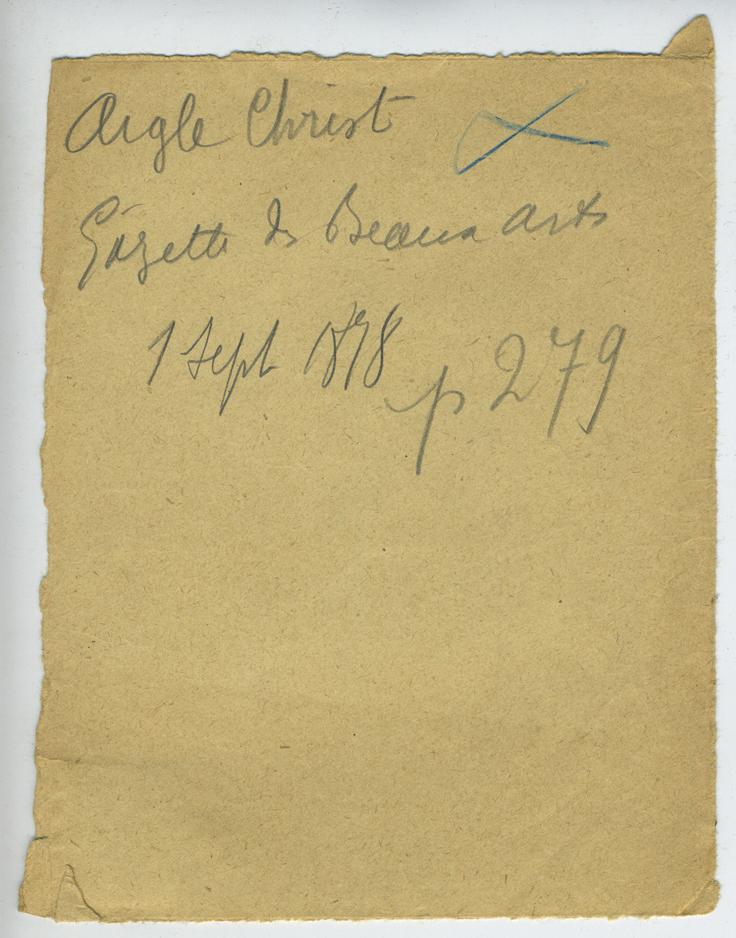 Aigle Christ
Gazette des Beaux arts
1 Sept 1878 p 279